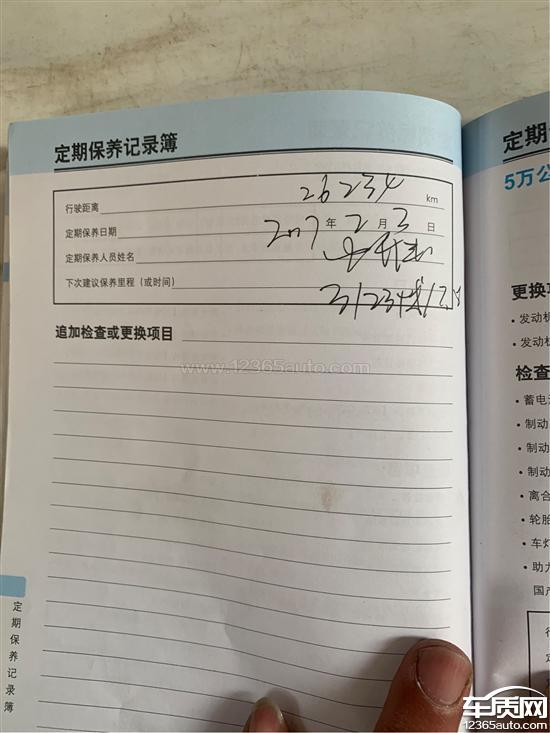 定期保养记录簿
行驶距离 26234 km
定期保养日期 2017 年 2 月 3 日
定期保养人员姓名
下次建议保养里程（或时间） 31234或
追加检查或更换项目
www.12365auto.com
定期保养记录簿
定期
5万公
更换项
・发动机
・发动机
检查
・蓄电
・制动
・制动
・制动
・离合
・轮胎
・车灯
・助力
国产
行
定
车质网
12365auto.com